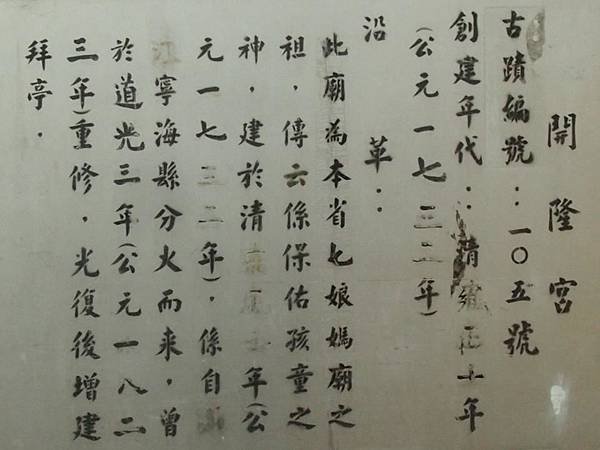 開隆宮
古蹟編號：一〇五號
創建年代：清雍正十年
(公元一七三二年)
沿　革：
此廟為本省七娘媽廟之
祖，傳云係保佑孩童之
神，建於清　年(公
元一七三二年)，係自
寧海縣分火而來，曾
於道光三年(公元一八二
三年)重修，光復後增建
拜亭．